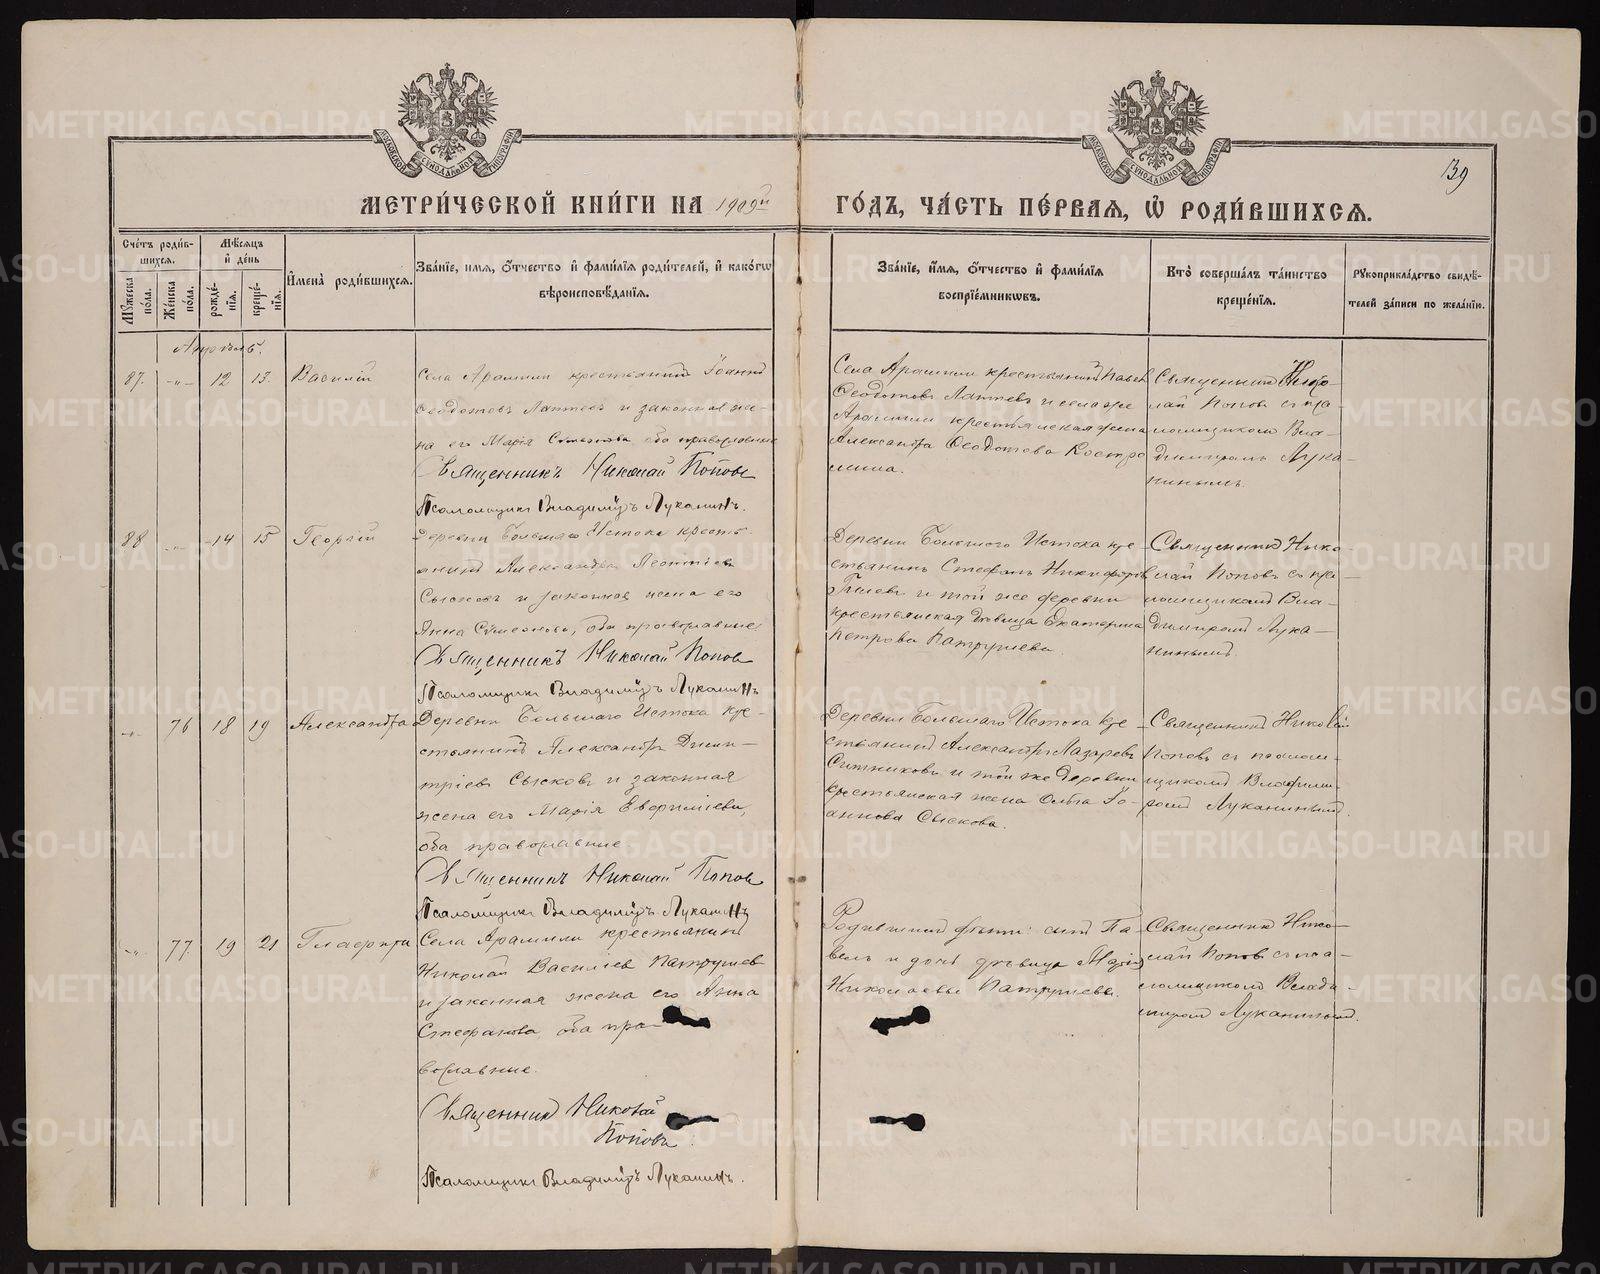 МЕТРИ́ЧЕСКОЙ КНИ́ГИ НА 1909й ГО́ДЪ, ЧА́СТЬ ПЕ́РВАЯ, Ѡ҆ РОДИ́ВШИХСЯ.
139
Сче́тъ роди́в-
шихся.
Мѣ́сяцъ
и҆ де́нь
Мꙋ́жеска по́ла.
Же́нска по́ла.
рожде́-
нїя.
креще́-
нїя.
И҆мена̀ роди́вшихся.
Зва́нїе, и҆мя, ѻ҆́тчество и҆ фами́лїя роди́телей, и҆ како́гѡ
вѣроисповѣ́данїя.
Зва́нїе, и҆́мя, ѻ҆́тчество и҆ фами́лїя
воспрїе́мникѡвъ.
Кто̀ соверша́лъ та́инство
креще́нїя.
Рꙋкоприкла́дство свидѣ́-
телей за́писи по жела́нїю.
Апрѣль.
87. -„- 12 13. Василій
Села Арамили крестьянинъ Іоаннъ
Ѳеодотовъ Лаптевъ и законная же-
на его Марія Сѵмеонова оба православные
Священникъ Николай Поповъ
Псаломщикъ Владиміръ Луканинъ.
Села Арамили крестьянинъ Павелъ
Ѳеодотовъ Лаптевъ и села же
Арамили крестьянская жена
Александра Ѳеодотова Костро
мина.
Священникъ Нико-
лай Поповъ съ пса-
ломщикомъ Вла-
диміромъ Лука-
нинымъ.
88 -„- 14 15 Георгій
Деревни Большаго Истока кресть-
янинъ Александръ Леонтіевъ
Сысковъ и законная жена его
Анна Сѵмеонова, оба православные
Священникъ Николай Поповъ
Псаломщикъ Владиміръ Луканинъ
Деревни Большого Истока кре-
стьянинъ Стефанъ Никифоровъ
и той же деревни
крестьянская дѣвица Екатерина
Петрова Патрушева.
Священникъ Нико-
лай Поповъ съ пса-
ломщикомъ Вла-
диміромъ Лука-
нинымъ
-„- 76 18 19 Александра
Деревни Большаго Истока кре-
стьянинъ Александръ Дими-
тріевъ Сысковъ и законная
жена его Марія Евфиміева,
оба православные
Священникъ Николай Поповъ
Псаломщикъ Владиміръ Луканинъ
Деревни Большаго Истока кре-
стьянинъ Александръ Лазаревъ
Ситниковъ и той же деревни
крестьянская жена Ольга Іо-
аннова Сыскова.
Священникъ Николай
Поповъ съ псалом-
щикомъ Владими-
ромъ Луканинымъ.
-„- 77. 19 21 Глафира
Села Арамили крестьянинъ
Николай Василіевъ Патрушевъ
и законная жена его Анна
Стефанова, оба пра-
вославные.
Священникъ Николай
Поповъ.
Псаломщикъ Владиміръ Луканинъ.
Родившей дѣти: сынъ Па-
велъ и дочь дѣвица Марія
Николаевы Патрушевы.
Священникъ Нико-
лай Поповъ съ пса-
ломщикомъ Влади-
міромъ Луканинымъ.
METRIKI.GASO-URAL.RU